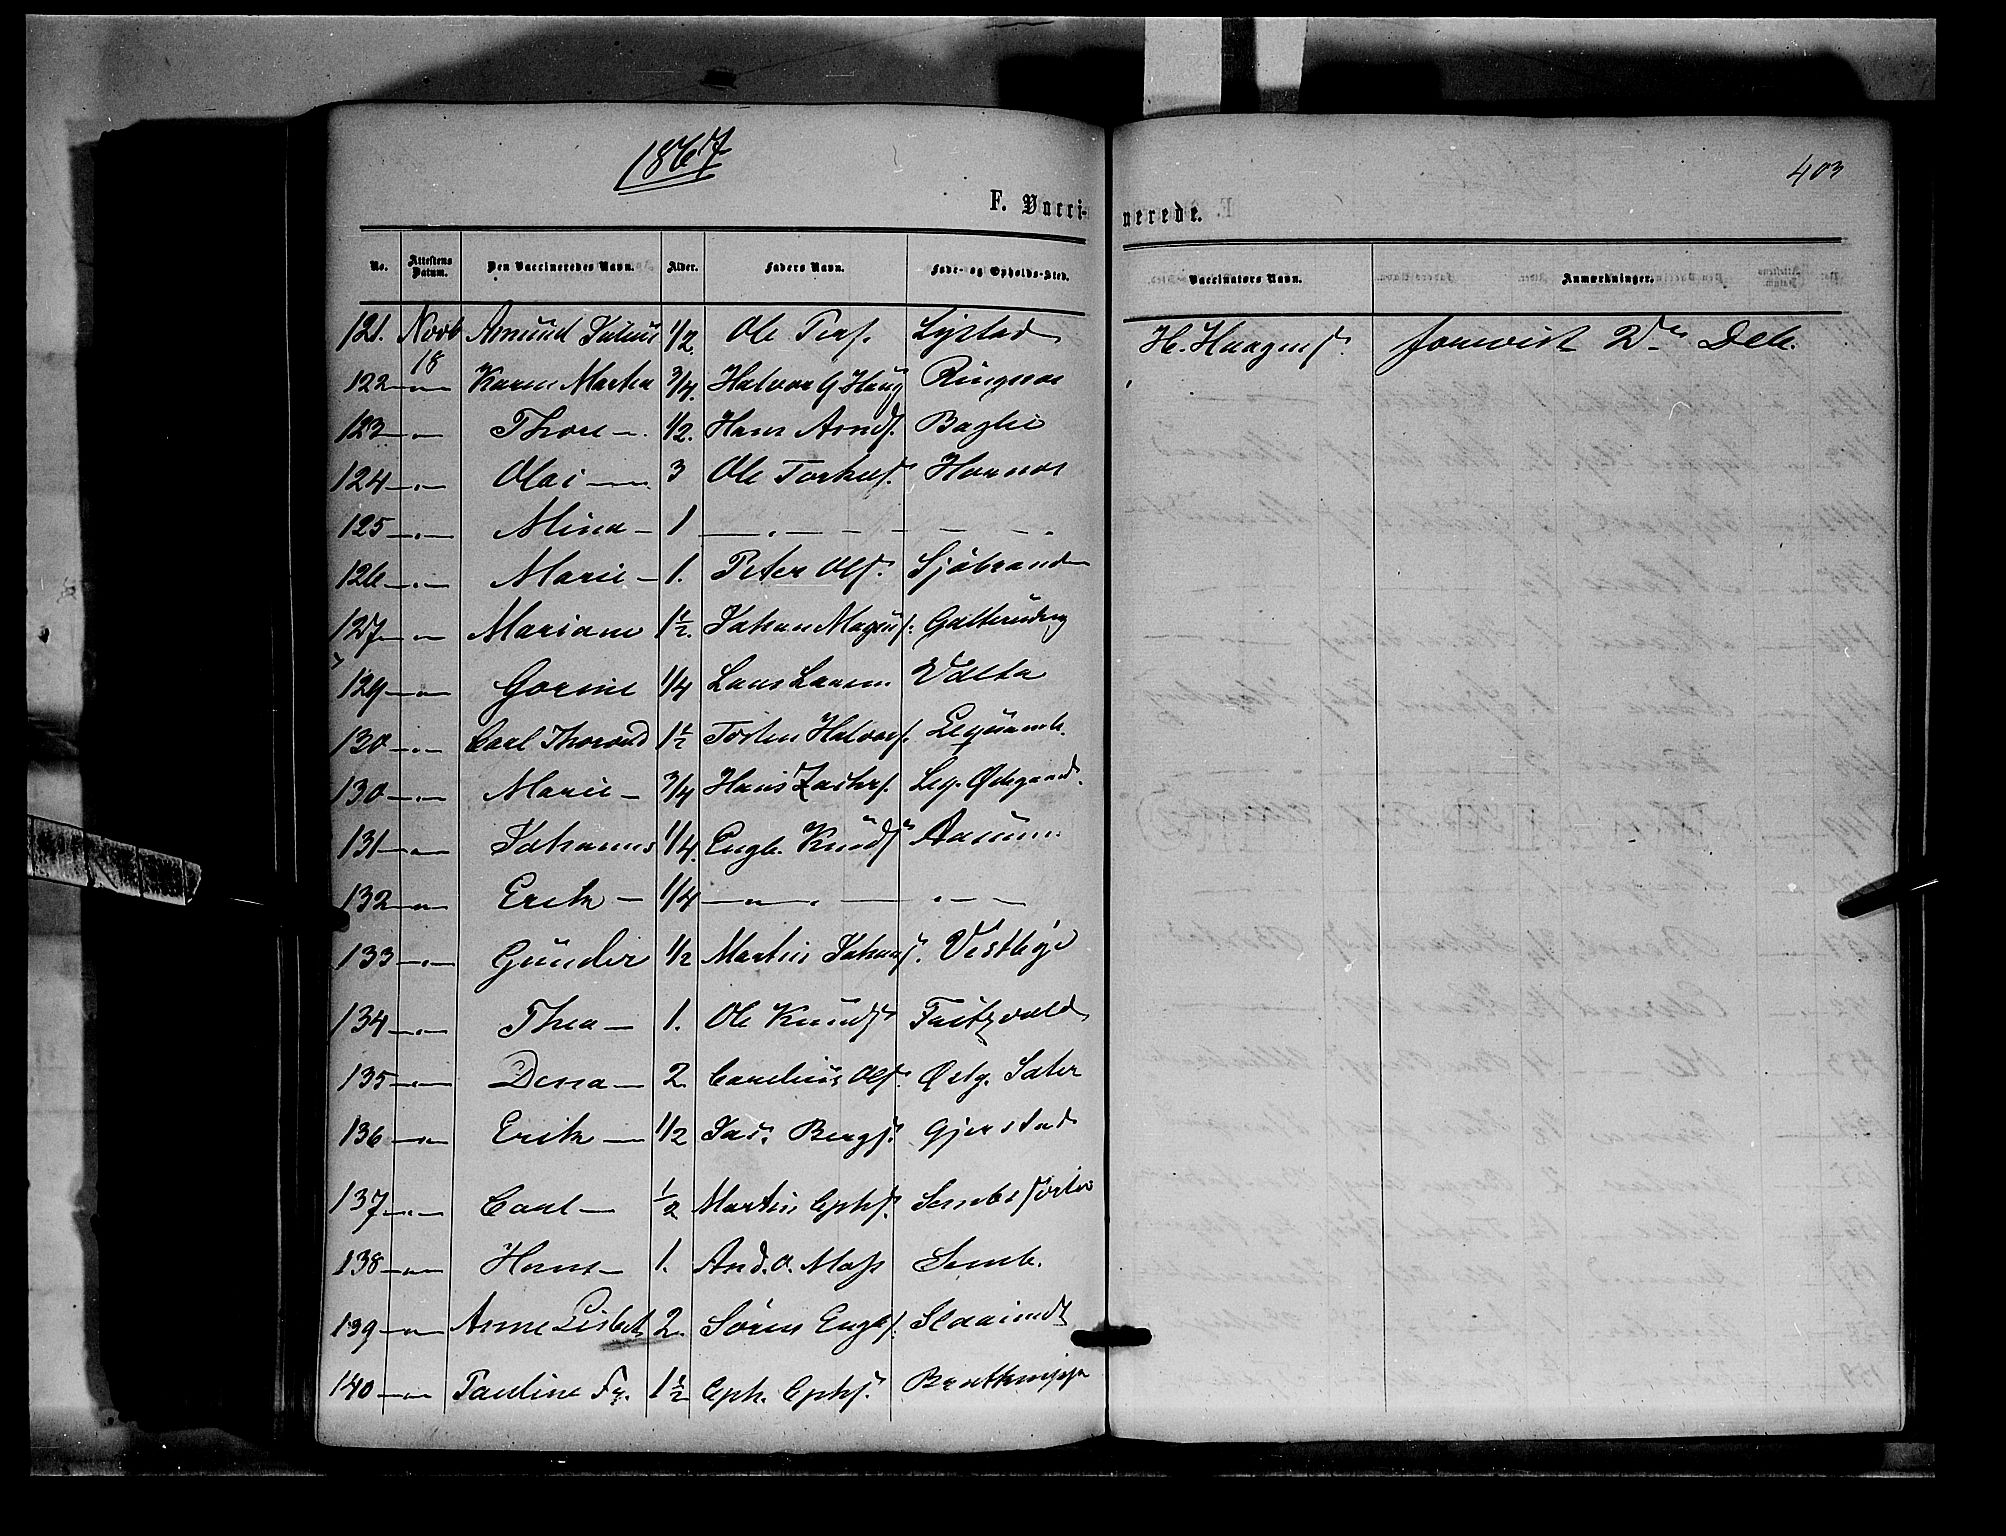 1867
403
F. Vacci-nerede.
No. Attestens Datum. Den Vaccineredes Navn. Alder. Faders Navn. Føde- og Opholds-Sted. Vaccinators Navn. Anmærkninger.
121. Novb 18 Amund Julius 1/2. Ole Pers. Lystad H. Haagens. forevist 2den Deb.
122 -"- Karen Martea 3/4. Halvor G Haug Ringnes
123 -"- Thore -. 1/2. Hans Amds. Baglie
124 -"- Olai - 3 Ole Torkels. Hornes
125 -"- Mina - 1 -"- - - -
126 -"- Marie - 1. Peter Ols. Sjøbrand
127 -"- Mariane 1 1/2. Johan Magnus.
129 -"- Gorine 1/4 Lars Larsen Valta
130 -"- Carl Thorvald 1 1/2 Torsten Halvors. Lequamb.
130 -"- Marie - 3/4 Hans Zachs. Leq. Ødegaard.
131 -"- Johannes 1/4. Engb. Knuds. Aasum
132 -"- Erik - 1/4 -"- . - . - -
133 -"- Gunder 1/2 Martin Johans. Vestbye
134 -"- Thea - 1. Ole Knuds.
135 -"- Dina - 2. Carelius Ols. Østg. Sater
136 -"- Erik - 1/2 Jac. Bergs. Gjerstad
137 -"- Carl - 1/2 Martin Ephs. Sembs
138 -"- Hans - 1. And. O. Moss Semb.
139 -"- Anne Lisbet 2. Sören Engbs. Slaaimdt
140 -"- Pauline Fr. 1 1/2 Eph. Ephs.